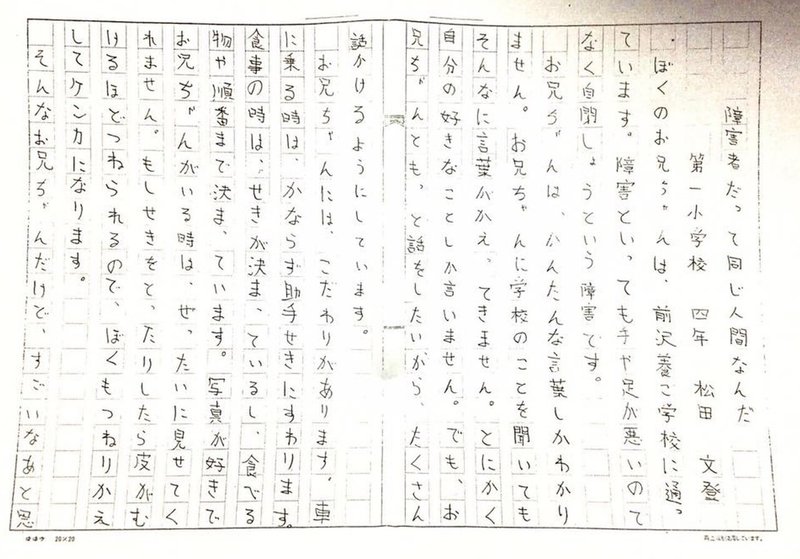 障害者だって同じ人間なんだ
第一小学校 四年 松田 文登
ぼくのお兄ちゃんは、前沢養ご学校に通っ
ています。障害といっても手や足が悪いので
なく自閉しょうという障害です。
お兄ちゃんは、かんたんな言葉しかわかり
ません。お兄ちゃんに学校のことを聞いても
そんなに言葉がかえってきません。とにかく
自分の好きなことしか言いません。でも、お
兄ちゃんともっと話をしたいから、たくさん
話かけるようにしています。
お兄ちゃんには、こだわりがあります。車
に乗る時は、かならず助手せきにすわります。
食事の時は、せきが決まっているし、食べる
物や順番まで決まっています。写真が好きで
お兄ちゃんがいる時は、ぜったいに見せてく
れません。もしせきをとったりしたら皮がむ
けるほどつねられるので、ぼくもつねりかえ
してケンカになります。
そんなお兄ちゃんだけで、すごいなあと思
20×20